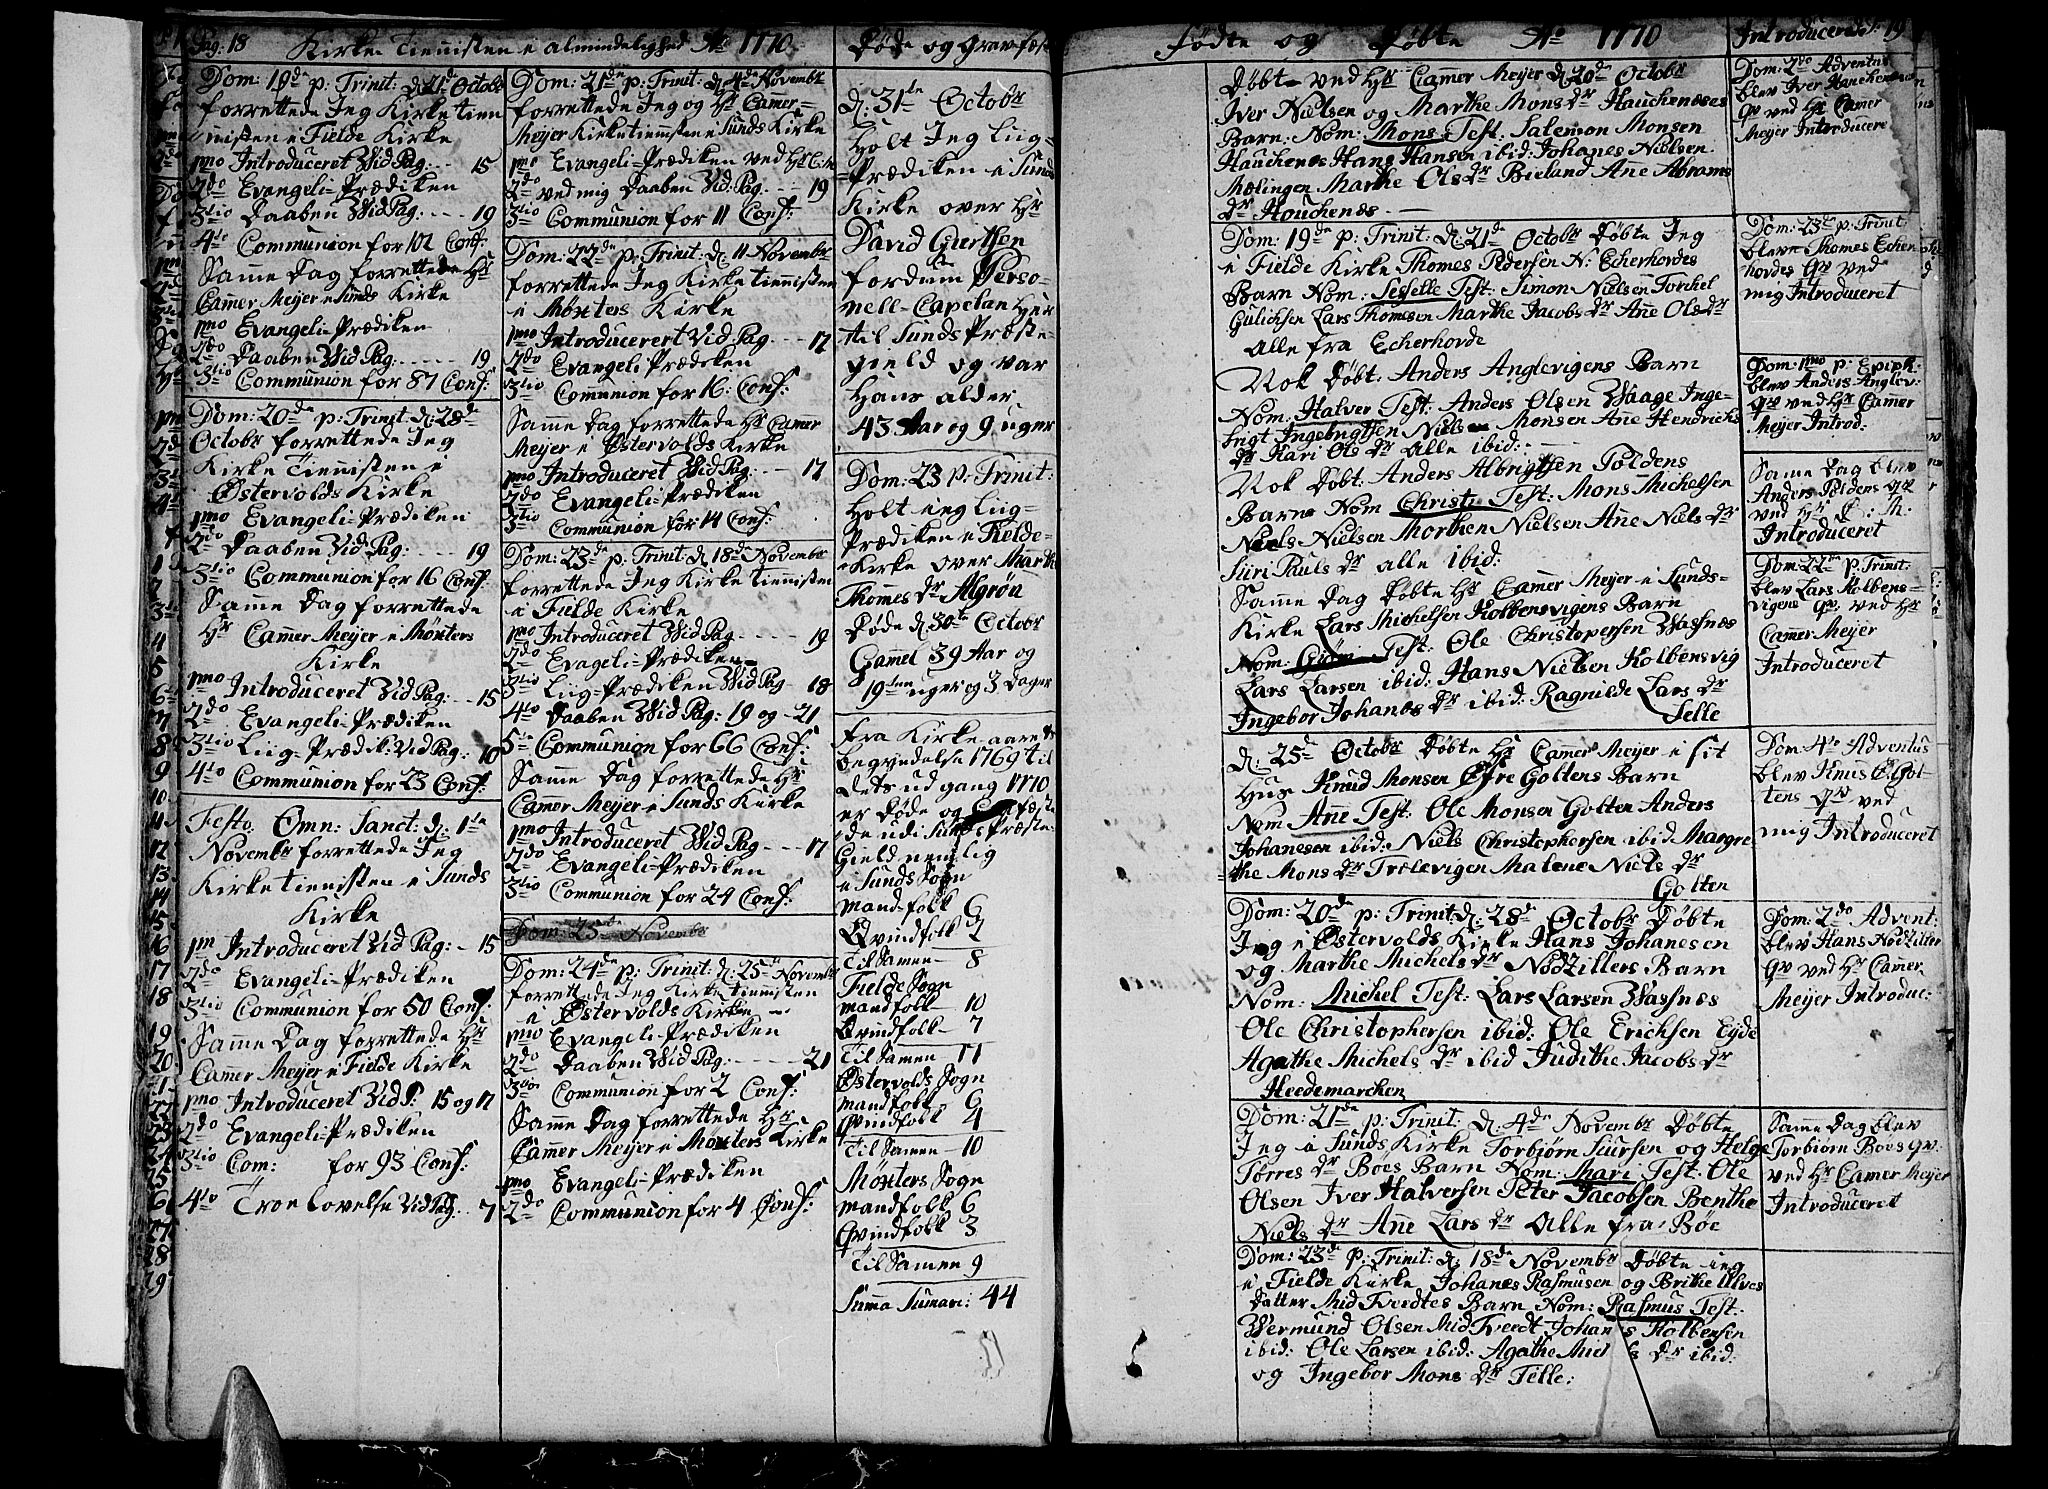 Pag: 18 Kirke Tiennisten i almindelighed Ao 1770
Dom: 19de p: Trinit: d. 21de Octobr
forrettede Jeg Kirke tien
nisten i Fielde Kirke
pmo Introduceret Vid Pag. 15
2do Evangeli-Prædiken
3tio Daaben Vid Pag: 19
4to Communion for 102 Conf:
Same Dag forrettede Hr
Camer Meijer i Sunds Kirke
pmo Evangeli-Prædiken
2do Daaben Vid Pag: 19
3tio Communion for 87 Conf:
Dom: 20de p: Trinit: d: 28de
Octobr forrettede Jeg
Kirke Tiennisten i
Østervolds Kirke
pmo Evangeli-Prædiken
2do Daaben Vid Pag: 19
3tio Communion for 16 Conf:
Samme Dag forrettede
Hr Camer Meijer i Møxters
Kirke
pmo Introduceret Vid Pag: 15
2do Evangeli-Prædiken
3tio Liig-Prædik: Vid Pag: 10
4to Communion for 23 Conf:
Festo Omn: Sanct: d: 1te
Novembr forrettede Jeg
Kirke tiennisten i Sunds
Kirke
pm Introduceret Vid Pag: 15
2do Evangeli-Prædiken
3tio Communion for 50 Conf
Samme Dag forrettede Hr
Camer Meijer i Fielde Kirke
pmo Introduceret Vid P: 15 og 17
2do Evangeli-Prædiken
3tio Com: for 93 Conf:
4to Troelovelse Vid Pag: 7
Dom: 21de p: Trinit: d. 4de Novembr
forrettede Jeg og Hr Camer
Meijer Kirketiennisten i Sunds Kirke
pmo Evangeli-Prædiken ved Hr C: M
2do ved mig Daaben Vid: Pag: 19
3tio Communion for 11 Conf:
Dom: 22de p: Trinit: d. 11 Novembr
forrettede Jeg Kirke tiennisten
i Møxters Kirke
pmo Introducerert Vid Pag 17
2do Evangeli-Prædeken
3tio Communion for 16: Conf:
Samme Dag forrettede Hr Camer
Meijer i Østervolds Kirke
pmo Introduceret Vid Pag: 17
2do Evangeli-Prædiken
3tio Communion for 14 Conf:
Dom: 23de p: Trinit: d. 18de Novembr
forrettede Jeg Kirke tiennisten
i Fielde Kirke
pmo Introduceret Vid Pag 19
2do Evageli-Prædiken
3tio Liig-Prædiken Vid Pag 18
4to Daaben Vid Pag: 19 og 21
5te Communion for 66 Conf:
Samme Dag forrettede Hr
Camer Meijer i Sunds Kirke
pmo Introduceret Vid Pag 17
2do Evangeli-Prædiken
3tio Communion for 24 Conf:
Dom: 25de Novembr
Dom: 24de p: Trinit: d: 25de Novembr
forrettede Jeg Kirke tiennisten
i Østervolds Kirke
pmo Evangeli-Prædiken
2do Daaben Vid Pag: 21
3tio Communion for 2 Conf:
Samme Dag forrettede Hr
Camer Meijer i Møxters Kirke
pmo Evangeli-Prædiken
2do Communion for 4 Conf:
Døde og Gravfæst
d. 31te Octobr
Holt Jeg Liig-
Prædiken i Sunds
Kirke over Hr
David Giertsen
fordum Perso-
nell-Capelan Her
til Sunds Præste-
gield og var
Hans alder
43 Aar og 9 uger
Dom: 23 p: Trinit:
Holt ieg Liig-
Prædiken i Fielde-
Kirke over Marth
Thomes dr Algrøn
Døde d. 30te Octobr
Gammel 39 Aar og
19ten uger og 3 Dager
Fra Kirke-aarets
begyndelse 1769 til
dets ud gang 1770
er Døde og
de udi Sunds Præste-
Gield nemlig
i Sunds Sogn
Mandfolk 6
Qvindfolk 2
Til Samen 8
Fielde Sogn
Mandfolk 10
Qvindfolk 7
Til Samen 17
Østervolds Sogn
Mandfolk 6
Qvindfolk 4
Til Samen 10
Møxters Sogn
Mandfolk 6
Qvindfolk 3
Til Samen 9
Summa Sumari: 44
Fødte og Døbte Ao 1770
Døbt ved Hr Camer Meijer d. 20de Octobr
Iver Nielsen og Marthe Mons dr Hauchenæses
Barn: Nom: Mons Test: Salemon Monsen
Hauchenæs Hans Hansen ibid: Johanes Nielsen
Mælingen Marthe Ols dr Bieland Ane Abrams
dr Houchenæs
Dom: 19de p: Trinit: d: 21de Octobr Døbte Jeg
i Fielde Kirke Thomes Pedersen N: Echerhovdes
Barn Nom: Sesselle Test: Simon Nielsen Torchel
Gulichsen Lars Thomesen Marthe Jacobs dr Ane Ols dr
Alle fra Echerhovde
Nok Døbt: Anders Anglevigens Barn
Nom: Halver Test: Anders Olsen Waage Inge-
brigt Ingebrigtsen Niels Monsen Ane Hendrichs
dr Kari Ols dr Alle ibid:
Nok Døbt: Anders Albrigtsen Toldens
Barn Nom Christi Test: Mons Michelsen
Niels Nielsen Morthen Nielsen Ane Niels dr
Siiri Pauls dr alle ibid:
Samme Dag Døbte Hr Camer Meijer i Sunds-
Kirke Lars Michelsen Kolbensvigens Barn
Nom: Giøri Test: Ole Christopersen Vassnæs
Lars Larsen ibid: Hans Nielsen Kolbensvig
Ingebor Johanes dr ibid: Ragnilde Lars dr
Selle
d. 25de Octobr Døbte Hr Camer Meijer i sit
Hus Knud Monsen Øfre Goltens Barn
Nom Ane Test: Ole Monsen Golten Anders
Johanesen ibid: Niels Christophersen ibid Margre
the Mons dr Trælevigen Malene Niels dr
Golten
Dom: 20de p: Trinit: d: 28de Octobr Døbte
Jeg i Østervolds Kirke Hans Johanesen
og Marthe Michels dr Nødzillers Barn
Nom: Michel Test: Lars Larsen Wassnæs
Ole Christophersen ibid: Ole Erichsen Eyde
Agathe Michels dr ibid Judithe Jacobs dr
Heedemarchen
Dom: 21de p: Trinit: d. 4de Novembr Døbte
Jeg i Sunds Kirke Torbjørn Siursen og Helge
Torres dr Boes Barn Nom: Mari Test: Ole
Olsen Iver Halversen Peter Jacobsen Benthe
Niels dr Ane Lars dr Alle fra Bøe
Dom: 23de p: Trinit: d: 18de Novembr Døbte ieg
i Fielde Kirke Johanes Rasmusen og Brithe Ulves
datter Mid Tvedtes Barn Nom: Rasmus Test:
Wermund Olsen Mid Tveedt Johan s Kolbensen
ibid: Ole Larsen ibid: Agathe Mich ls dr ibid:
og Ingebor Mons dr Telle:
Introducerede: 19
Dom: 2do Adventus
blev Iver Hauchenæs
Qv ved Hr Camer
Meijer Introducere
Dom: 23de p: Trinit:
blev Thomes Echer-
hovdes Qv ved
mig Introduceret
Dom: 1mo p: Epiph:
blev Anders Anglev:
Qv ved Hr Camer
Meijer Introd:
Same Dag blev
Anders Toldens Qv
ved Hr C: M:
Introduceret
Dom: 22de p: Trinit:
blev Lars Kolbens-
vigens Qv. ved Hr
Camer Meijer
Introduceret
Dom: 4to Adventus
blev Knus Ø: Gol-
tens Qv ved
mig Introduceret
Dom: 2do Advent:
blev Hans Nødziller
Qv ved Hr Camer
Meijer Introduc:
Samme Dag blev
Torbiørn Boes Qv:
ved Hr Camer Meijer
Introduceret